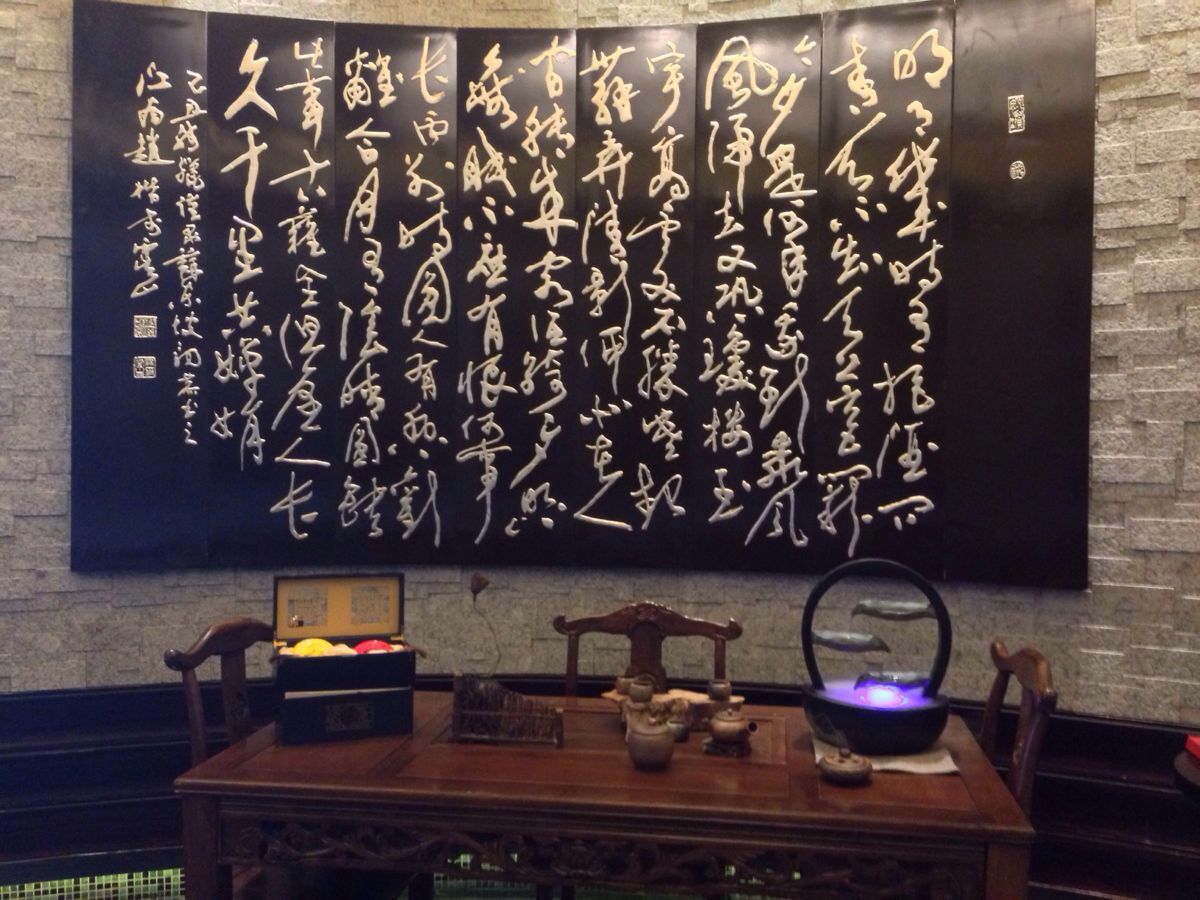 明月幾時有把酒問
青天不知天上宮闕
今夕是何年我欲乘風
風歸去又恐瓊樓玉
宇高處不勝寒起
舞弄清影何似在人
間轉朱閣低綺戶照
無眠不應有恨何事
長向別時圓人有悲歡
離合月有陰晴圓缺
此事古難全但願人長
久千里共嬋娟
己丑東坡詞
江南趙